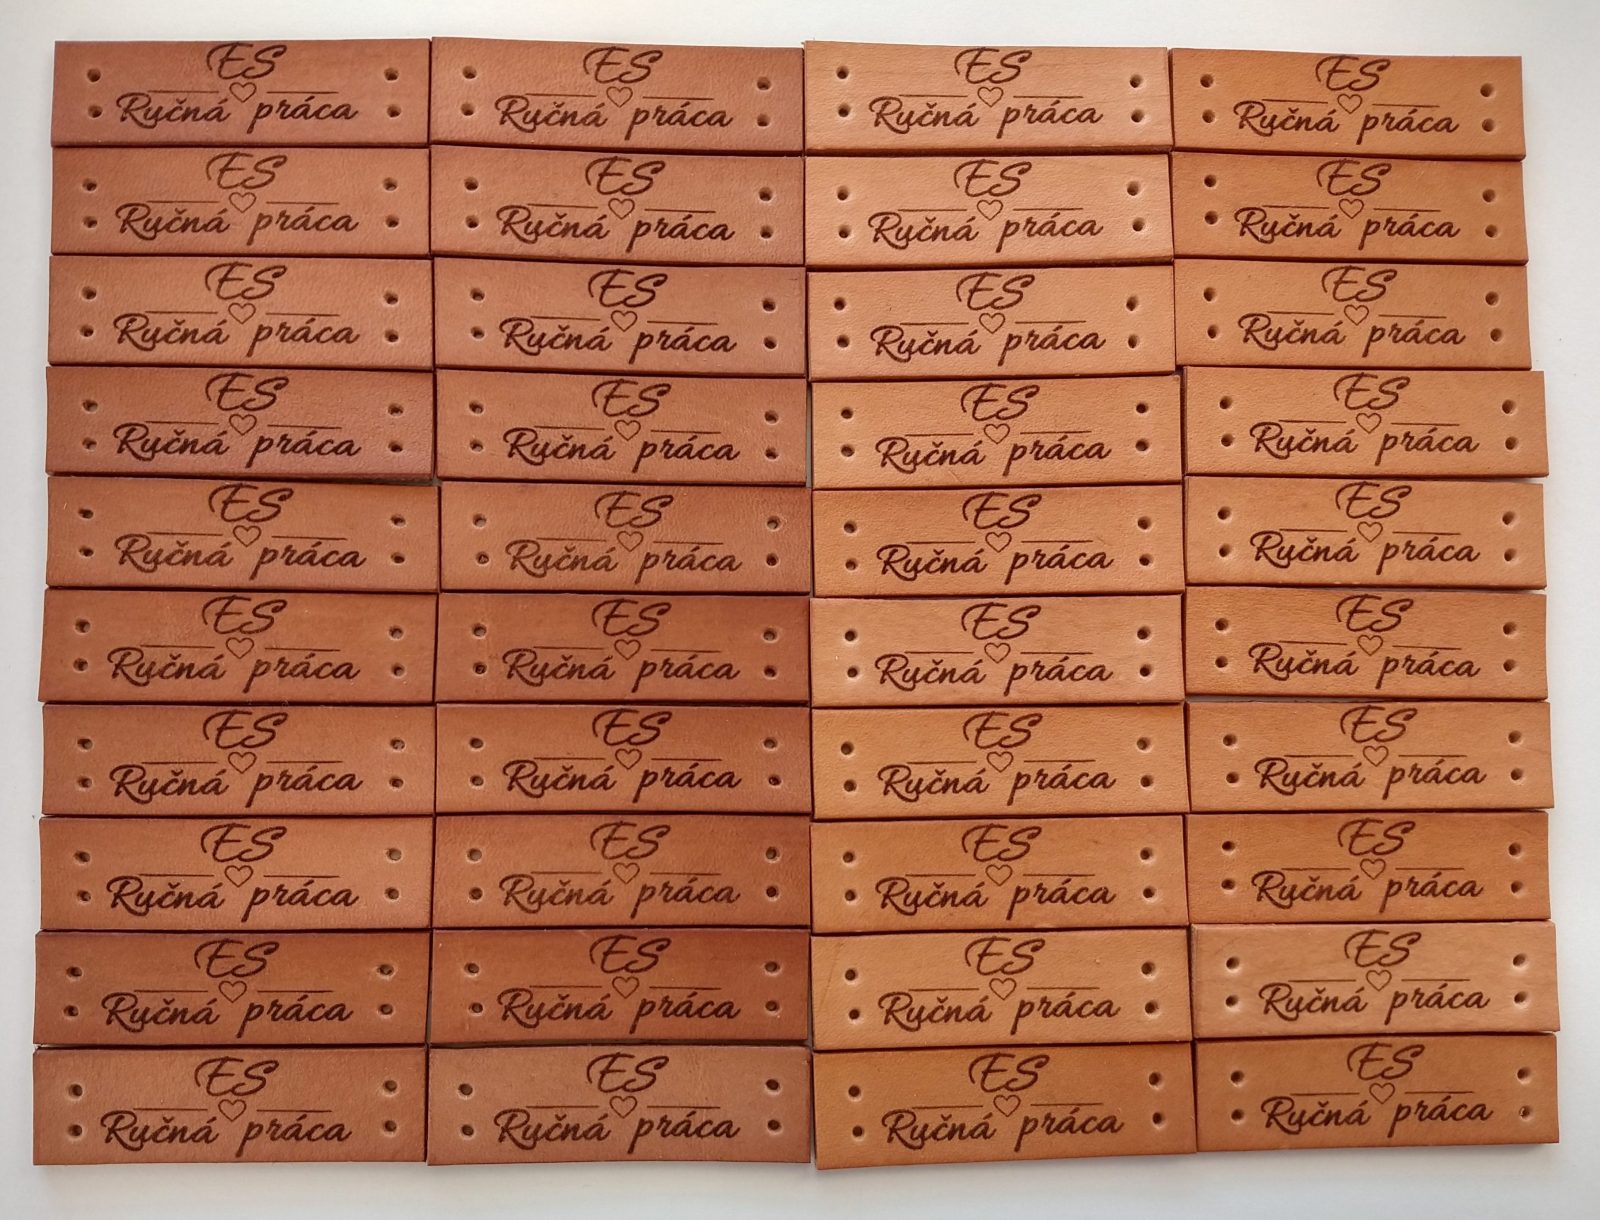 ES
Ručná práca
ES
Ručná práca
ES
Ručná práca
ES
Ručná práca
ES
Ručná práca
ES
Ručná práca
ES
Ručná práca
ES
Ručná práca
ES
Ručná práca
ES
Ručná práca
ES
Ručná práca
ES
Ručná práca
ES
Ručná práca
ES
Ručná práca
ES
Ručná práca
ES
Ručná práca
ES
Ručná práca
ES
Ručná práca
ES
Ručná práca
ES
Ručná práca
ES
Ručná práca
ES
Ručná práca
ES
Ručná práca
ES
Ručná práca
ES
Ručná práca
ES
Ručná práca
ES
Ručná práca
ES
Ručná práca
ES
Ručná práca
ES
Ručná práca
ES
Ručná práca
ES
Ručná práca
ES
Ručná práca
ES
Ručná práca
ES
Ručná práca
ES
Ručná práca
ES
Ručná práca
ES
Ručná práca
ES
Ručná práca
ES
Ručná práca